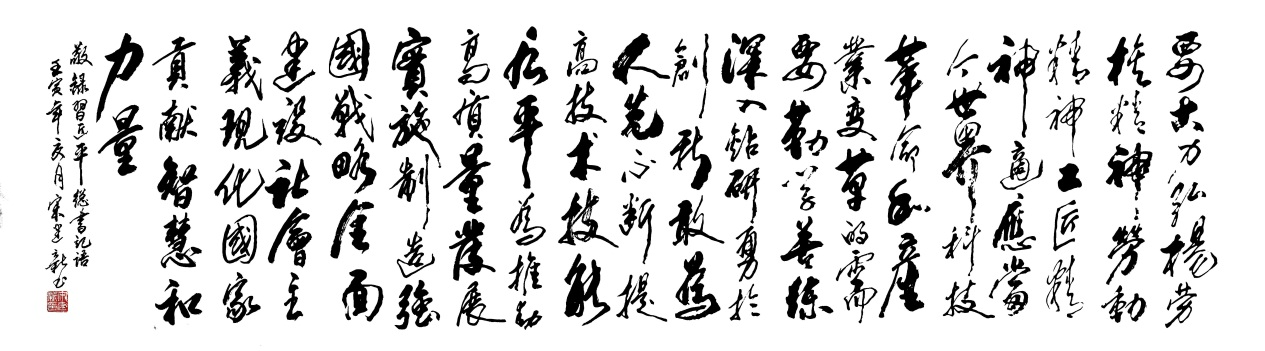 要大力弘揚勞
模精神勞動
精神工匠精
神適應當
今世界科技
革命和産
業變革的需
要勤学善練
深入鉆研勇於
創新敢為
人先不断提
高技术技能
水平為推动
高質量發展
實施制造強
國戰略全面
建设社會主
義現化國家
貢献智慧和
力量
敬録習近平總書記語
壬寅年亥月宋建新书